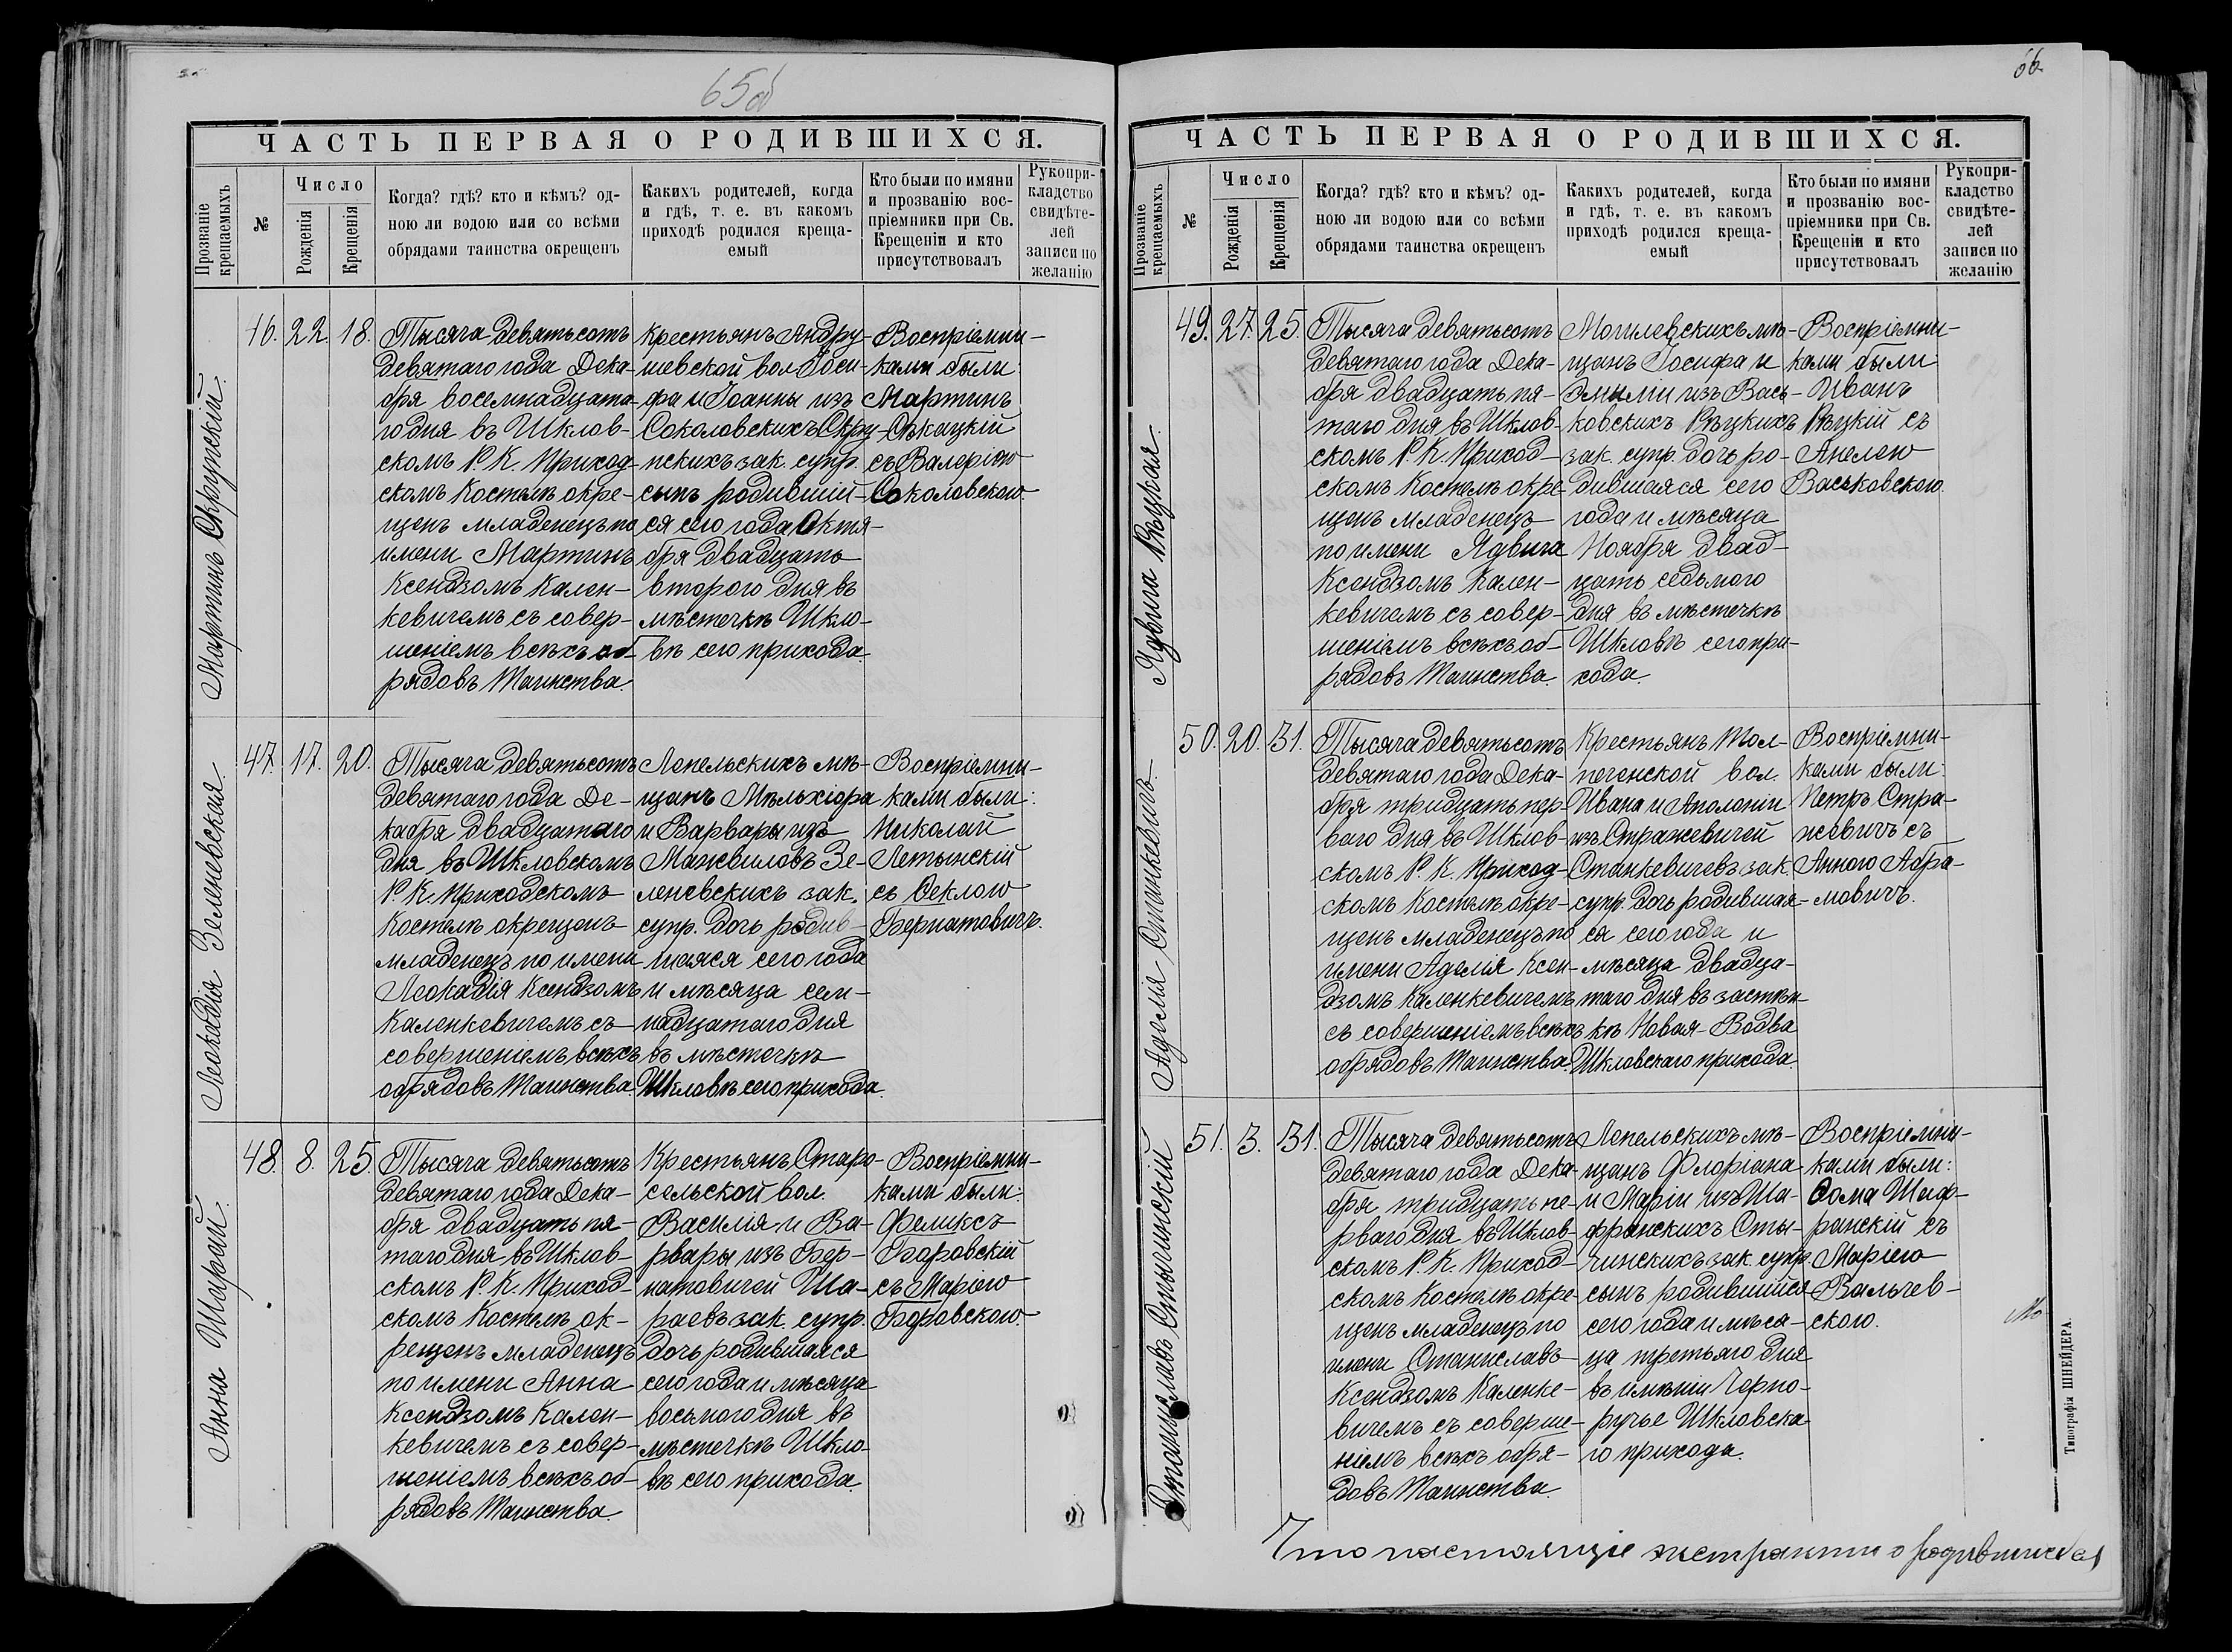 65об
ЧАСТЬ ПЕРВАЯ О РОДИВШИХСЯ.
Прозваніе крещаемыхъ
№
Число
Рожденія
Крещенія
Когда? гдѣ? кто и кѣмъ? од-
ною ли водою или со всѣми
обрядами таинства окрещенъ
Какихъ родителей, когда
и гдѣ, т. е. въ какомъ
приходѣ родился креща-
емый
Кто были по имяни
и прозванію вос-
пріемники при Св.
Крещеніи и кто
присутствовалъ
Рукопри-
кладство
свидѣте-
лей
записи по
желанію
Мартинъ Скрупскій.
46. 22. 18.
Тысяча девятьсотъ
девятаго года Дека-
бря восемнадцата-
го дня въ Шклов-
скомъ Р. К. Приход-
скомъ Костелѣ окре-
щенъ младенецъ по
имени Мартинъ
Ксендзомъ Кален-
кевичемъ съ совер-
шеніемъ всѣхъ об-
рядовъ Таинства.
Крестьянъ Андру-
шевской вол Іоси-
фа и Іоанны изъ
Соколовскихъ Скру-
пскихъ зак. супр.
сынъ родившій-
ся сего года Октя-
бря двадцать
второго дня въ
мѣстечкѣ Шкло-
вѣ сего прихода.
Воспріемни-
ками были
Мартинъ
съ Валеріею
Соколовскою
Леокадія Зеленевская.
47. 17. 20.
Тысяча девятьсотъ
девятаго года Де-
кабря двадцатаго
дня въ Шкловскомъ
Р. К. Приходскомъ
Костелѣ окрещенъ
младенецъ по имени
Леокадія Ксендзомъ
Каленкевичемъ съ
совершеніемъ всѣхъ
обрядовъ Таинства.
Лепельскихъ мѣ-
щанъ Мельхіора
и Варвары изъ
Манвиловъ Зе-
леневскихъ зак.
супр. дочь родив-
шаяся сего года
и мѣсяца сем-
надцатаго дня
въ мѣстечкѣ
Шкловѣ сего прихода.
Воспріемни-
ками были:
Николай
Летынскій
съ Ѳеклою
Бернатовичъ.
Анна Шарай.
48. 8. 25.
Тысяча девятьсотъ
девятаго года Дека-
бря двадцать пя-
таго дня въ Шклов-
скомъ Р. К. Приход-
скомъ Костелѣ ок-
рещенъ младенецъ
по имени Анна
Ксендзомъ Кален-
кевичемъ съ совер-
шеніемъ всѣхъ об-
рядовъ Таинства.
Крестьянъ Старо-
сельской вол.
Василія и Ва-
рвары изъ Бер-
натовичей Ша-
раевъ зак. супр.
дочь родившаяся
сего года и мѣсяца
восьмого дня въ
мѣстечкѣ Шкло-
вѣ сего прихода
Воспріемни-
ками были:
Феликсъ
Боровскій
съ Маріею
Боровскою.
66
ЧАСТЬ ПЕРВАЯ О РОДИВШИХСЯ.
Прозваніе крещаемыхъ
№
Число
Рожденія
Крещенія
Когда? гдѣ? кто и кѣмъ? од-
ною ли водою или со всѣми
обрядами таинства окрещенъ
Какихъ родителей, когда
и гдѣ, т. е. въ какомъ
приходѣ родился креща-
емый
Кто были по имяни
и прозванію вос-
пріемники при Св.
Крещеніи и кто
присутствовалъ
Рукопри-
кладство
свидѣте-
лей
записи по
желанію
Ядвига Рѣцкая.
49. 27. 25.
Тысяча девятьсотъ
девятаго года Дека-
бря двадцать пя-
таго дня въ Шклов-
скомъ Р. К. Приход-
скомъ Костелѣ окре-
щенъ младенецъ
по имени Ядвига
Ксендзомъ Кален-
кевичемъ съ совер-
шеніемъ всѣхъ об-
рядовъ Таинства.
Могилевскихъ мѣ-
щанъ Іосифа и
Эмиліи изъ Вась-
ковскихъ Рѣцкихъ
зак. супр. дочь ро-
дившаяся сего
года и мѣсяца
Ноября двад-
цать седьмого
дня въ мѣстечкѣ
Шкловѣ сего при-
хода.
Воспріемни-
ками были
Иванъ
Рѣцкій съ
Анелею
Васьковскою.
Аделія Станкевичъ.
50. 20. 31.
Тысяча девятьсотъ
девятаго года Дека-
бря тридцать пер-
ваго дня въ Шклов-
скомъ Р. К. Приход-
скомъ Костелѣ окре-
щенъ младенецъ по
имени Аделія Ксен-
дзомъ Каленкевичемъ
съ совершеніемъ всѣхъ
обрядовъ Таинства.
Крестьянъ Тол-
печенской вол.
Ивана и Аполоніи
изъ Стражевичей
Станкевичевъ зак.
супр. дочь родившая-
ся сего года и
мѣсяца двадца-
таго дня въ застѣн-
кѣ Новая-Водва
Шкловскаго прихода.
Воспріемни-
ками были:
Петръ Стра-
жевичъ съ
Анною Абра-
мовичъ.
Станиславъ Стычинскій
51. 3. 31.
Тысяча девятьсотъ
девятаго года Дека-
бря тридцать пе-
рваго дня въ Шклов-
скомъ Р. К. Приход-
скомъ Костелѣ окре-
щенъ младенецъ по
имени Станиславъ
Ксендзомъ Каленке-
вичемъ съ соверше-
ніемъ всѣхъ обря-
довъ Таинства.
Лепельскихъ мѣ-
щанъ Флоріана
и Маріи изъ Ша-
франскихъ Сты-
чинскихъ зак. супр.
сынъ родившійся
сего года и мѣся-
ца третьяго дня
въ имѣніи Черно-
ручье Шкловска-
го прихода.
Воспріемни-
ками были:
Ѳома Шаф-
ранскій съ
Маріею
Вальчев-
скою.
Типографія ШНЕЙДЕРА.
Что настоящіе экстракты о родившихся